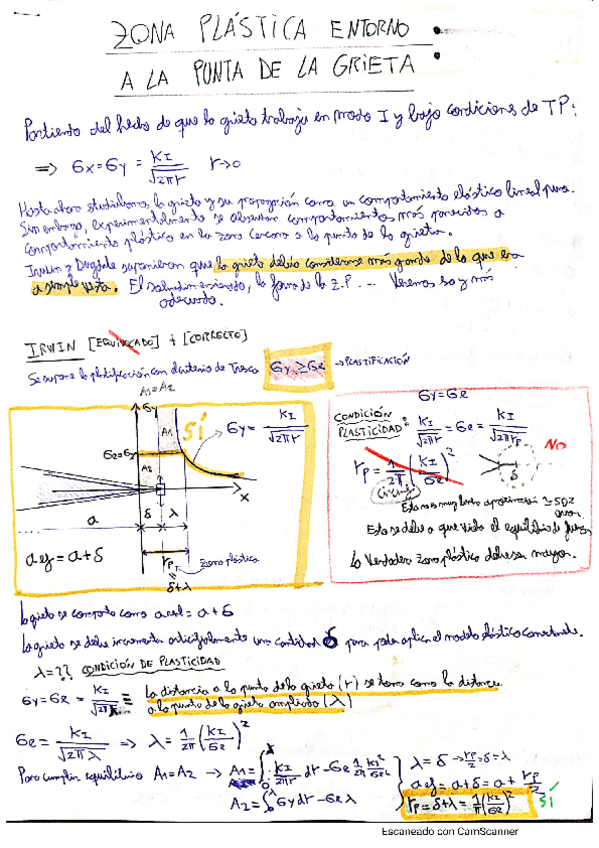 ZONA PLÁSTICA ENTORNO
A LA PUNTA DE LA GRIETA :
Partiendo del hecho de que la grieta trabaja en modo I y bajo condicions de TP:
⇒ σx=σy = KI/√2πr r→0
Hasta ahora studiabamos la grieta y su propagación como un comportamiento elástico lineal puro.
Sin embargo, experimentalmente se observan comportamientos más parecidos a
comportamiento plástico en la zona cercana a la punta de la grieta.
Irwin y Dugdale supusieron que la grieta debía considerarse más grande de lo que era
a simple vista. El sobredimensionado, la forma de la Z.P.... Veremos so y más
adecuado.
IRWIN [EQUIVOCADO] + [CORRECTO]
Se supone la plastificación con el criterio de Tresca σy ≥ σe → PLASTIFICACIÓN
A1=A2
σy
A1
SÍ
σy = KI/√2πr
σe=σy
A2
x
a δ λ
rp zona plástica
=
δ+λ
aef = a+δ
σy=σe
CONDICIÓN PLASTICIDAD: KI/√2πr = σe = KI/√2πrp
rp = 1/2π (KI/σe)²
NO
δ
Esta es muy burda aproximación ≃ 50%
error
Esto se debe a que viola el equilibrio de fuerzas
La verdadera zona plástica debe ser mayor.
La grieta se comporta como aeff = a+δ
La grieta se debe incrementar artificialmente una cantidad δ para poder aplicar el modelo elástico
λ=?? CONDICIÓN DE PLASTICIDAD
σy=σe = KI/√2πr ≡ La distancia a la punta de la grieta (r) se toma como la distancia
a la punta de la grieta ampliada (λ)
σe = KI/√2πλ ⇒ λ = 1/2π (KI/σe)²
Para cumplir equilibrio A1=A2 → A1 = ∫ KI/√2πr dr - σe 1/2π KI²/σe²
A2 = ∫ σy dr - σe λ
λ=δ → rp/2 = δ = λ
aef = a+δ = a + rp/2
rp = δ+λ = 1/π (KI/σe)² SÍ
Escaneado con CamScanner